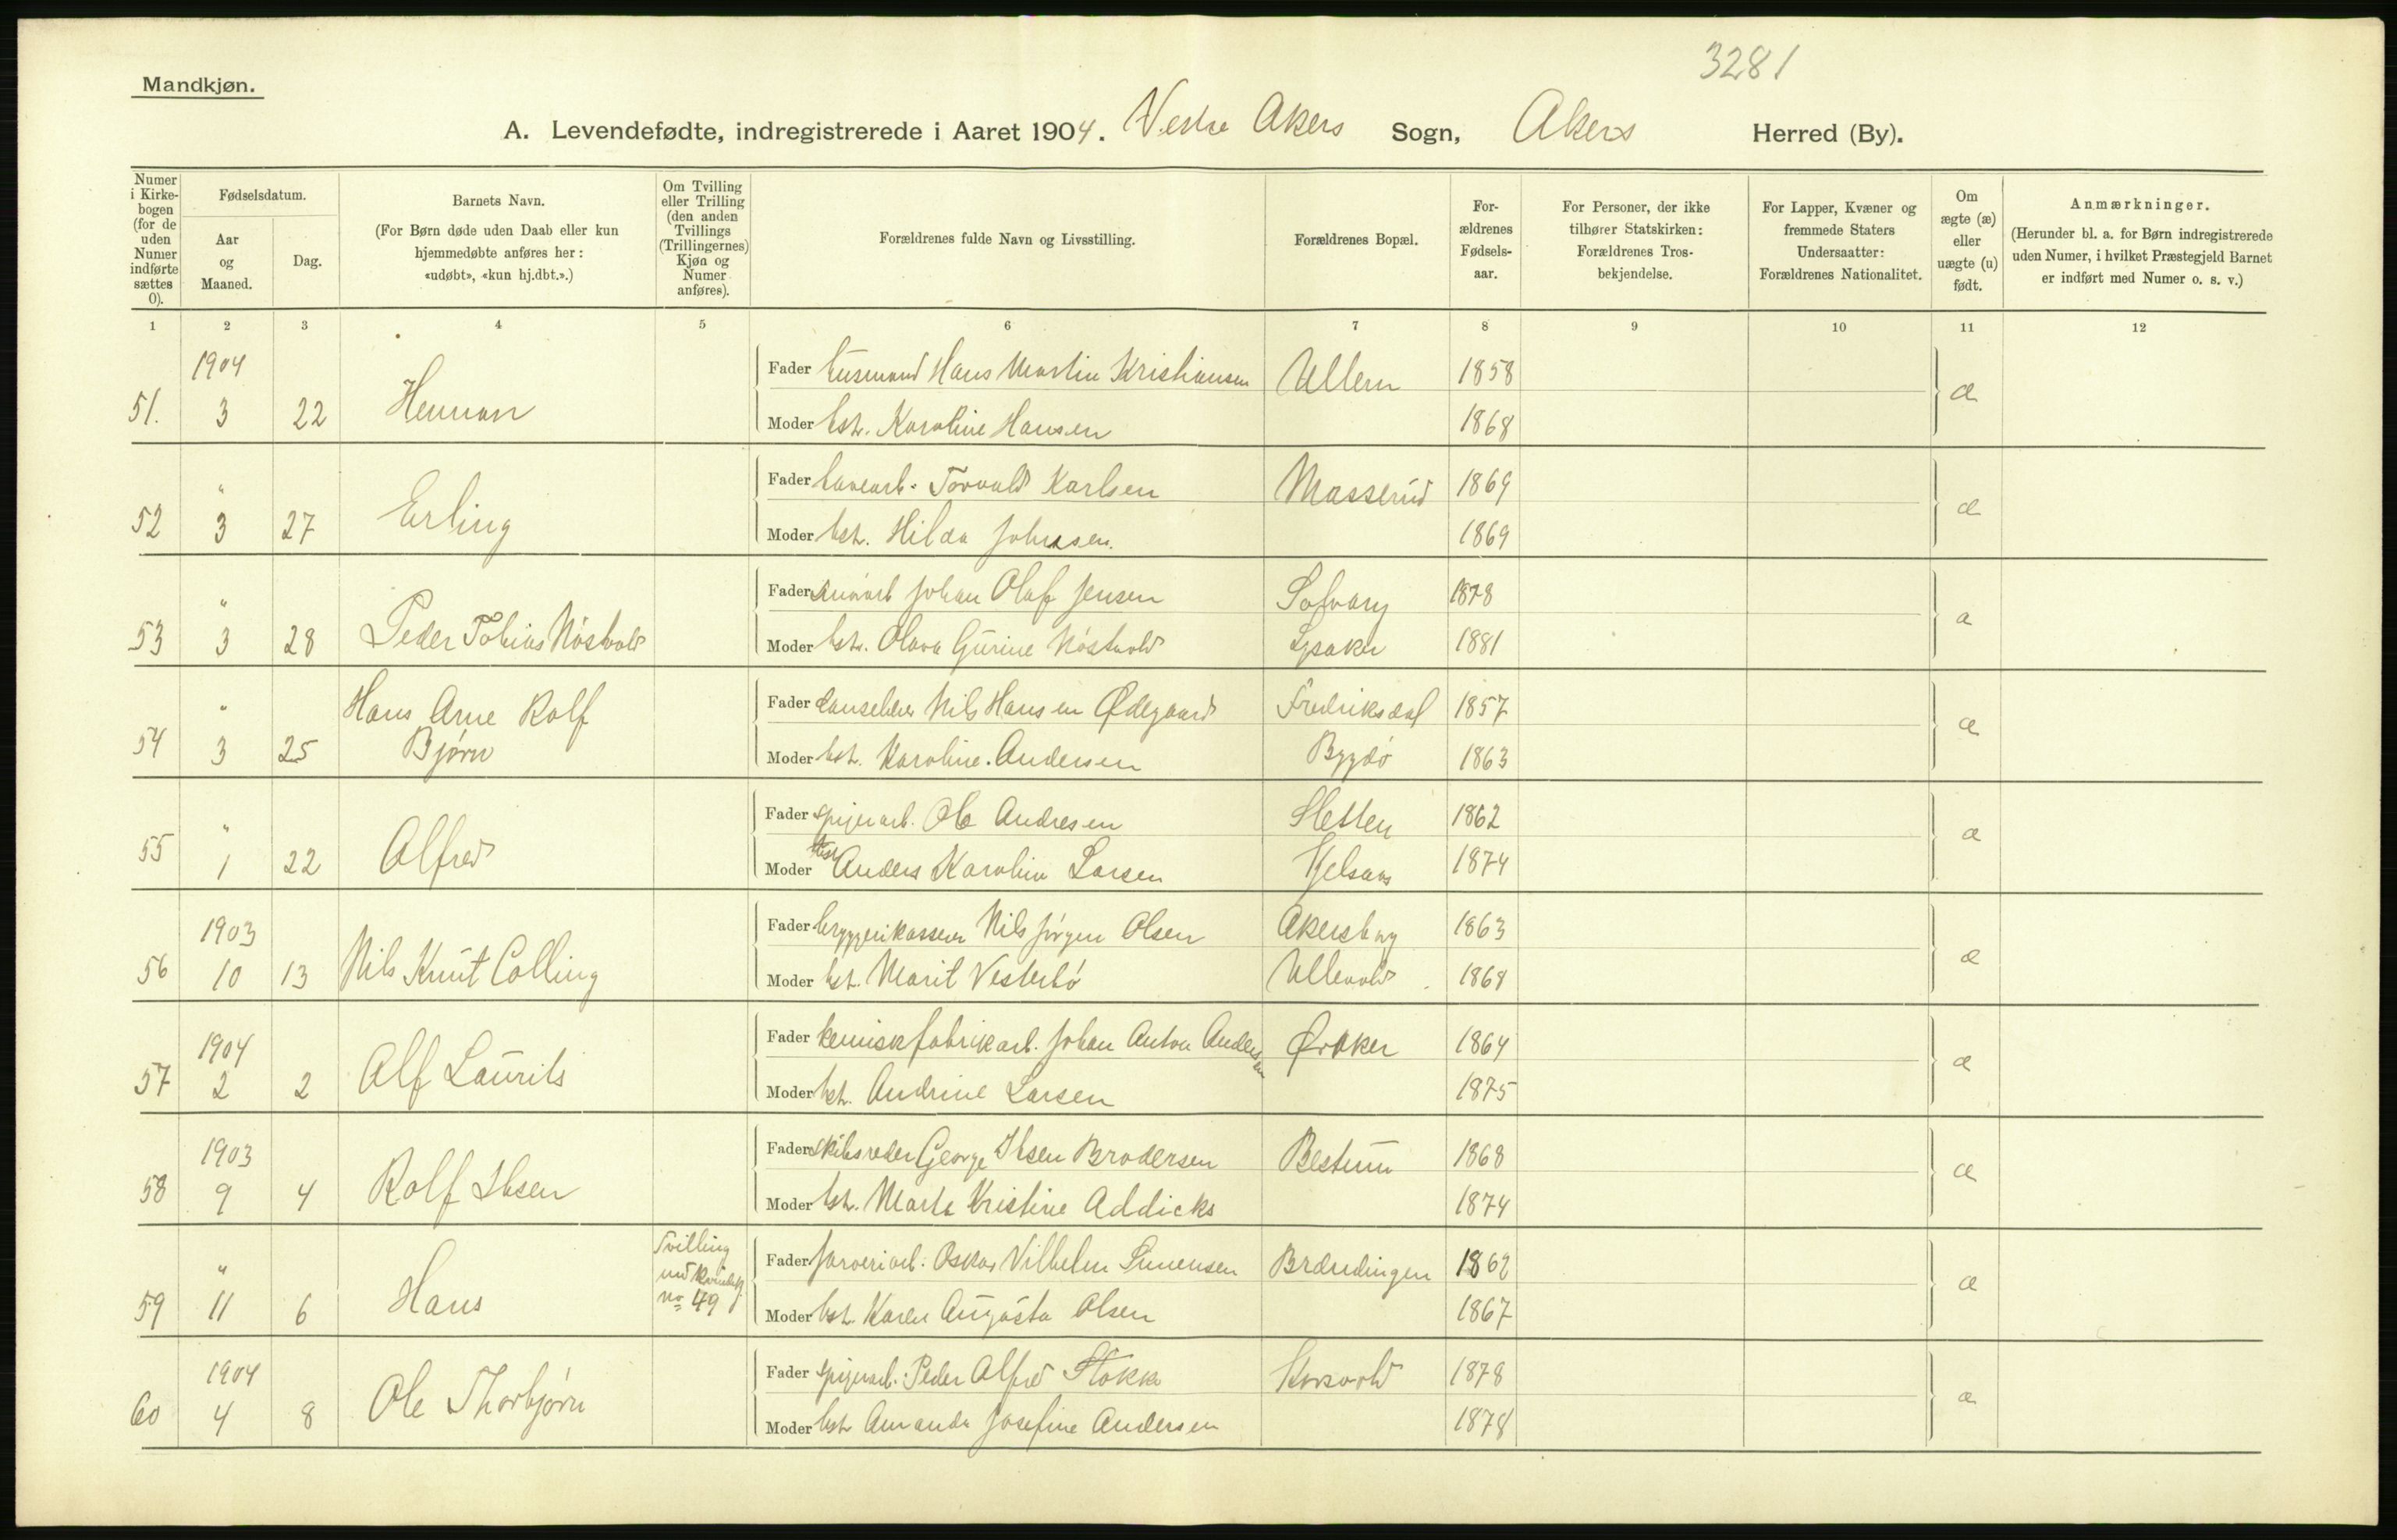 3281
Mandkjøn.
A. Levendefødte, indregistrerede i Aaret 1904. Vestre Akers Sogn, Akers Herred (By).
Numer i Kirkebogen (for de uden Numer indførte sættes 0).
Fødselsdatum.
Aar og Maaned.
Dag.
Barnets Navn.
(For Børn døde uden Daab eller kun hjemmedøbte anføres her: «udøbt», «kun hj.dbt.».)
Om Tvilling eller Trilling (den anden Tvillings (Trillingernes) Kjøn og Numer anføres).
Forældrenes fulde Navn og Livsstilling.
Forældrenes Bopæl.
Forældrenes Fødselsaar.
For Personer, der ikke tilhører Statskirken: Forældrenes Trosbekjendelse.
For Lapper, Kvæner og fremmede Staters Undersaatter: Forældrenes Nationalitet.
Om ægte (æ) eller uægte (u) født.
Anmærkninger.
(Herunder bl. a. for Børn indregistrerede uden Numer, i hvilket Præstegjeld Barnet er indført med Numer o. s. v.)
1 2 3 4 5 6 7 8 9 10 11 12
1904
51. 3 22 Herman
Fader husmand Hans Martin Kristiansen Ullern 1858 æ
Moder hst. Karoline Hansen 1868
"
52 3 27 Erling
Fader havearb. Torvald Karlsen Masserud 1869 æ
Moder hst. Hilda Johnsen. 1869
"
53 3 28 Peder Tobias Nöstvold
Fader Johan Olaf Jensen 1878 æ
Moder hst. Olava Gurine Nöstvold Lysaker 1881
"
54 3 25 Hans Arne Rolf
Bjørn
Fader Nils Hansen Ødegaard Fredriksdal 1857 æ
Moder hst. Karoline Andersen Bygdö 1863
"
55 1 22 Alfred
Fader spigerarb. Ole Andresen Sletten 1862 æ
Moder hst Anders Karolina Larsen Kjelsaas 1874
1903
56 10 13 Nils Knut Colling
Fader bryggerikasserer Nils Jörgen Olsen Akersborg 1863 æ
Moder hst. Marit Vesterbö Ullevold 1868
1904
57 2 2 Alf Laurits
Fader kemiskfabrikarb. Johan Anton Andersen Øraker 1864 æ
Moder hst. Andrine Larsen 1875
1903
58 9 4 Rolf Ibsen
Fader skibsreder George Ibsen Brodersen Bestum 1868 æ
Moder hst. Marta Kristine Addicks 1874
"
59 11 6 Hans
Tvilling
med kvindekj.
no 49
Fader farveriarb. Oskar Vilhelm Simensen Brændingen 1862 æ
Moder hst. Karen Augusta Olsen 1867
1904
60 4 8 Ole Thorbjörn
Fader spigerarb. Peder Alfred Stokke Korsvold 1878 æ
Moder hst Amanda Josefine Andersen 1878